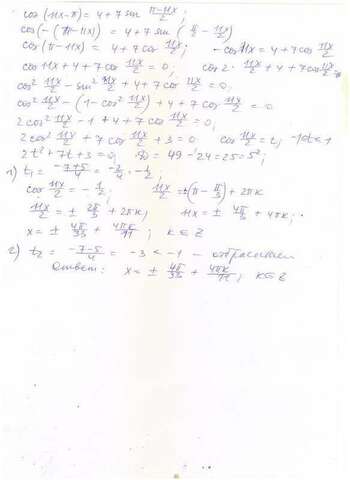 cos(11x-π) = 4+7 sin (π-11x)/2;
cos(-(π-11x)) = 4+7 sin (π/2 - 11x/2)
cos(π-11x) = 4+7cos 11x/2; -cos11x = 4+7cos 11x/2
cos11x+4+7cos 11x/2 = 0; cos2·11x/2+4+7cos 11x/2=0;
cos² 11x/2 - sin² 11x/2 +4+7cos 11x/2 = 0;
cos² 11x/2 - (1-cos² 11x/2) + 4+7cos 11x/2 = 0
2cos² 11x/2 -1 +4+7cos 11x/2 = 0;
2cos² 11x/2 + 7cos 11x/2 + 3 = 0; cos 11x/2 = t, -1≤t≤1
2t²+7t+3=0; D = 49-24=25=5²;
1) t₁ = (-7+5)/4 = -2/4 = -1/2;
cos 11x/2 = -1/2; 11x/2 = ±(π-π/3)+2πk
11x/2 = ± 2π/3 + 2πk; 11x = ± 4π/3 + 4πk;
x = ± 4π/33 + 4πk/11; k∈Z
2) t₂ = (-7-5)/4 = -3 < -1 – отбрасываем
Ответ: x = ± 4π/33 + 4πk/11; k∈Z